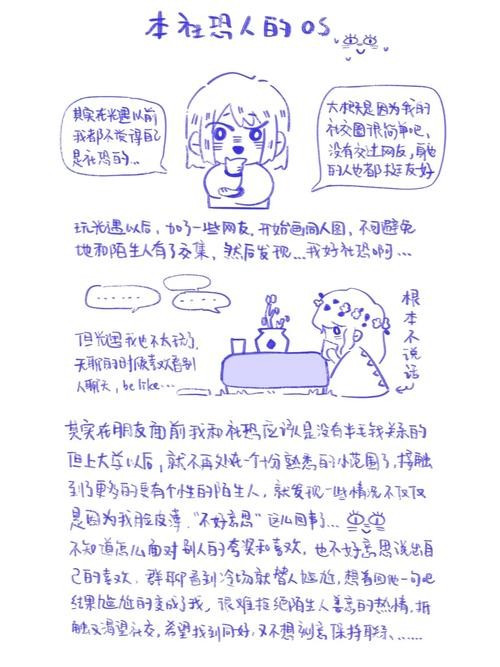 本社恐人的OS
其实在光遇以前
我都不觉得自己
是社恐的...
大概是因为我的
社交圈很简单吧,
没有交过网友,身边
的人也都挺友好
玩光遇以后,加了一些网友,开始画同人图,不可避免
地和陌生人有了交集,然后发现...我好社恐啊...
但光遇我也不太玩了,
无聊的时候喜欢看别
人聊天,be like...
根本不说话
其实在朋友面前我和社恐应该是没有半毛钱关系的
但上大学以后,就不再处在一个十分熟悉的小范围了,接触
到了更多的具有个性的陌生人,就发现一些情况不仅仅
是因为我脸皮薄,"不好意思"这么回事了...
不知道怎么面对别人的夸奖和喜欢,也不好意思说出自
己的喜欢.群聊看到冷场就替人尴尬,想着回他一句吧
结果尴尬的变成了我,很难拒绝陌生人善意的热情,抵
触又渴望社交,希望找到同好,又不想刻意保持联系......